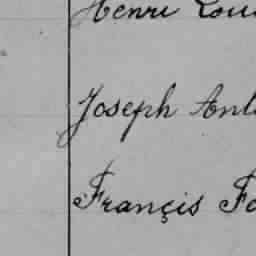 Henri Loui
Joseph Ant
Françis Fa